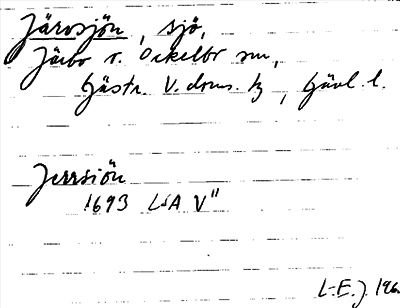 Järvsjön, sjö,
Järbo o. Ockelbo snr,
Gästr. V. doms. tg, Gävl. l.
Jerrsiön
1693 LSA V"
L.E.J. 196